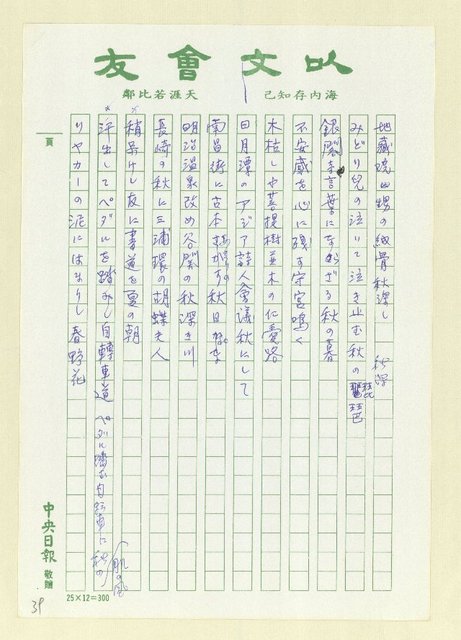 以文會友
海內存知己 天涯若比鄰
地蔵焼 甥の納骨秋深し 秋深
みどり児の泣いて泣き止む秋の琵琶
銀閣寺言葉にならざる秋の暮
不安感を心に残す守宮鳴く
木枯しや菩提樹並木の仁愛路
日月潭のアジア詩人会議秋にして
南昌街に古本あがなう秋日かな
明治温泉改め谷関の秋深き川
長崎の秋に三浦環の胡蝶夫人
稍尋けし友に書道を夏の朝
汗出してペダルを踏みし自轉車道 ペダル踏む自転車に秋の
肌の風
リヤカーの泥にはまりし春野花
頁
中央日報 敬贈
25×12=300
39